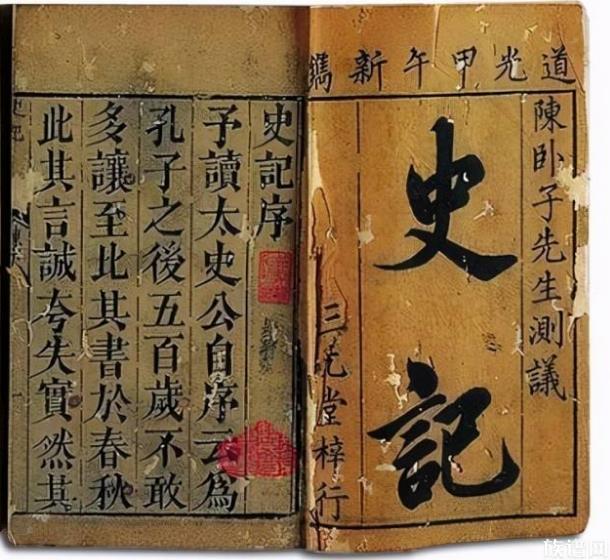 道光甲午新鐫
陳卧子先生測議
史記
三堂梓行
史記序
予讀太史公自序云為
孔子之後五百歲不敢
多讓至比其書於春秋
此其言誠夸失實然其
族谱网